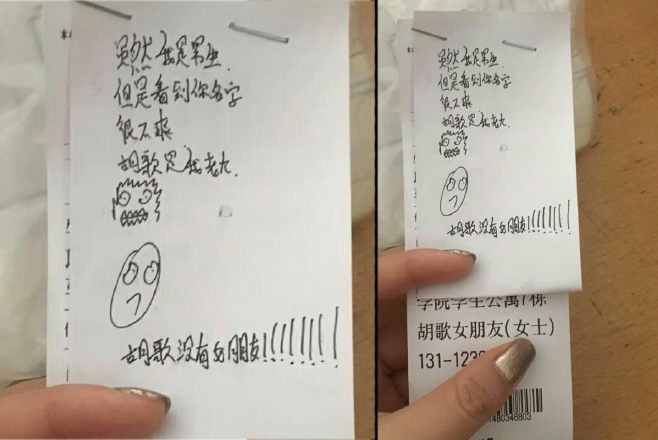 虽然我是男生.
但是看到你名字
很不爽
胡歌是我老公.
胡歌没有女朋友!!!!!!!!
虽然我是男生.
但是看到你名字
很不爽
胡歌是我老公.
胡歌没有女朋友!!!!!!!!
学院学生公寓7栋
胡歌女朋友(女士)
131-123
1480348803